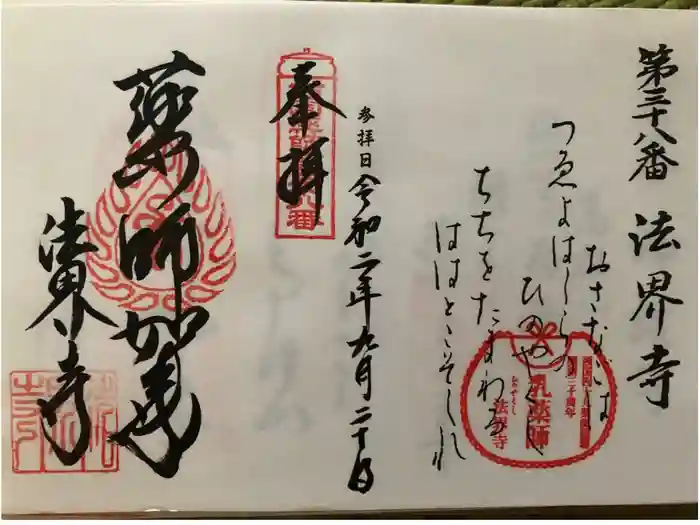 第三十八番 法界寺
おさなごは
つゑよはしらの
ひのやくし
ちちをたまわる
ははとこそしれ
三十周年
乳薬師
法界寺
参拝日 令和二年九月二十日
奉拝
薬師如来
法界寺